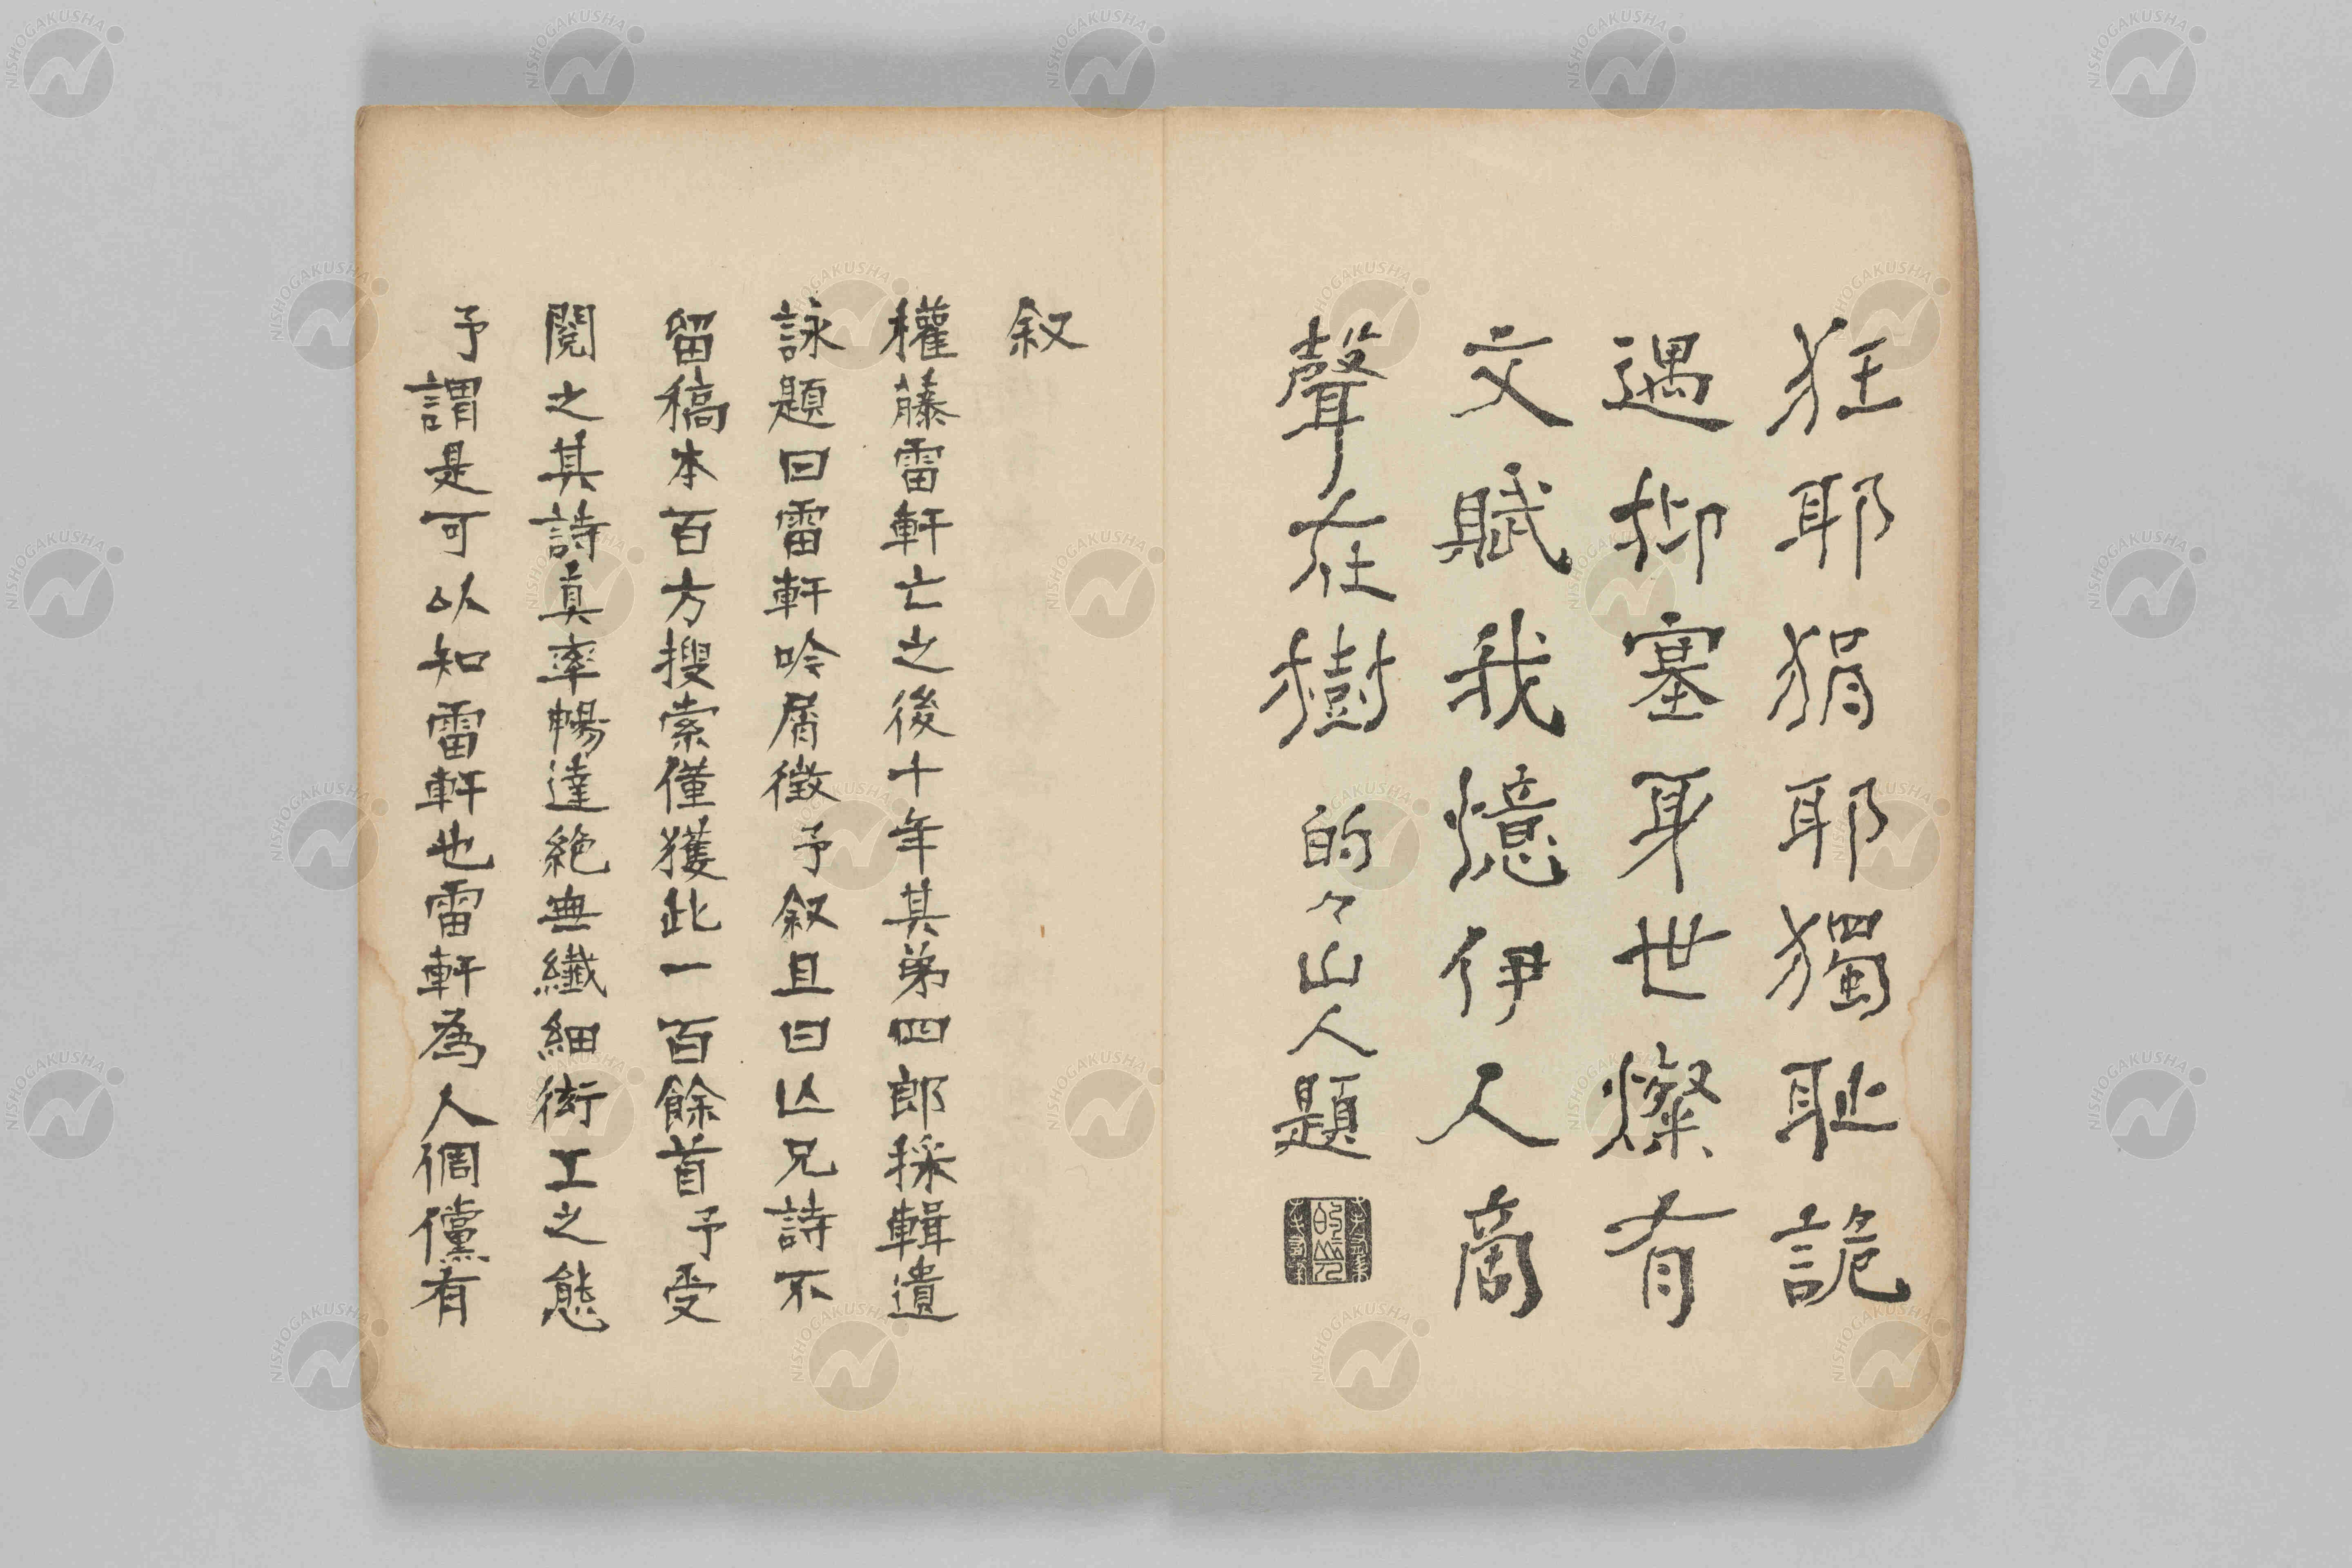 狂耶狷耶獨耻詭
遇抑塞身世燦有
文賦我憶伊人商
聲在樹 的々山人題
叙
權藤雷軒亡之後十年其弟四郎採輯遺
詠題曰雷軒吟屑徵予叙且曰亾兄詩不
留稿本百方搜索僅獲此一百餘首予受
閱之其詩真率暢達絶無纖細衒工之態
予謂是可以知雷軒也雷軒為人倜儻有
NISHOGAKUSHA